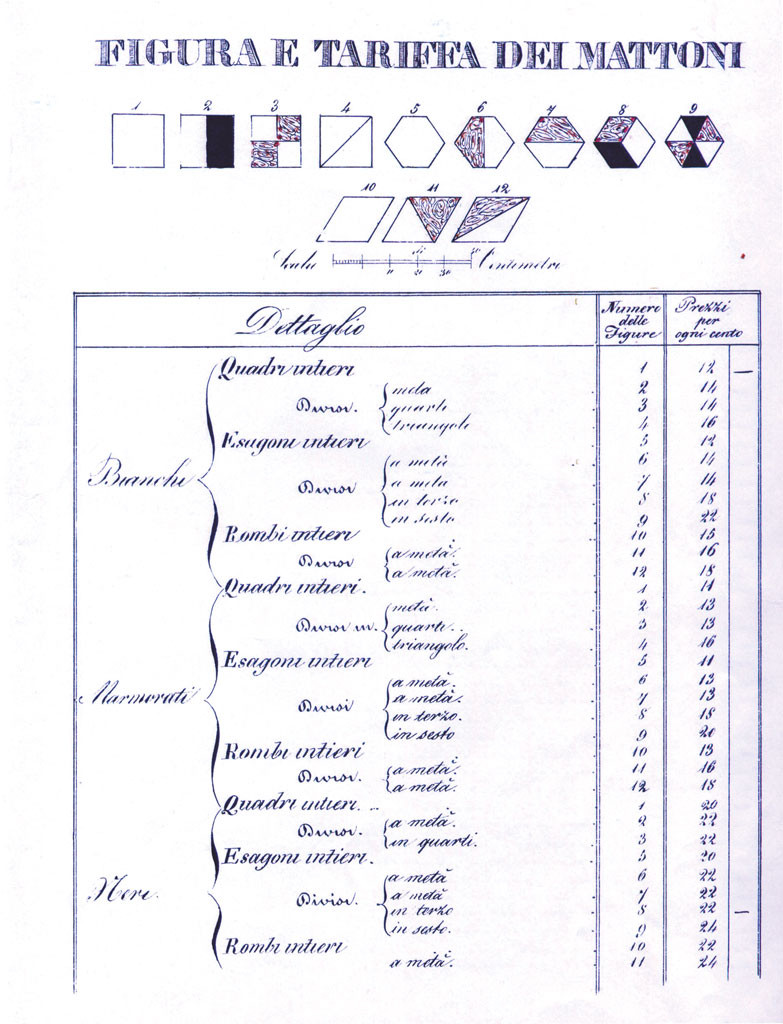 FIGURA E TARIFFA DEI MATTONI
1 2 3 4 5 6 7 8 9
10 11 12
Scala Centimetri
Dettaglio Numero delle Figure Prezzi per ogni cento
Bianchi
Quadri intieri 1 12 —
Divisi. metà 2 14
quarti 3 14
triangoli 4 16
Esagoni intieri 5 12
Divisi a metà 6 14
a metà 7 14
in terzo 8 18
in sesto 9 22
Rombi intieri 10 15
Divisi a metà. 11 16
a metà. 12 18
Marmorati
Quadri intieri. 1 11
Divisi in. metà. 2 13
quarti.. 3 13
triangolo. 4 16
Esagoni intieri 5 11
Divisi a metà. 6 13
a metà. 7 13
in terzo. 8 18
in sesto 9 20
Rombi intieri 10 13
Divisi a metà. 11 16
a metà. 12 18
Neri.
Quadri intieri. 1 20
Divisi. a metà. 2 22
in quarti. 3 22
Esagoni intieri. 5 20
Divisi. a metà 6 22
a metà 7 22
in terzo 8 22 —
in sesto. 9 24
Rombi intieri 10 22
a metà. 11 24